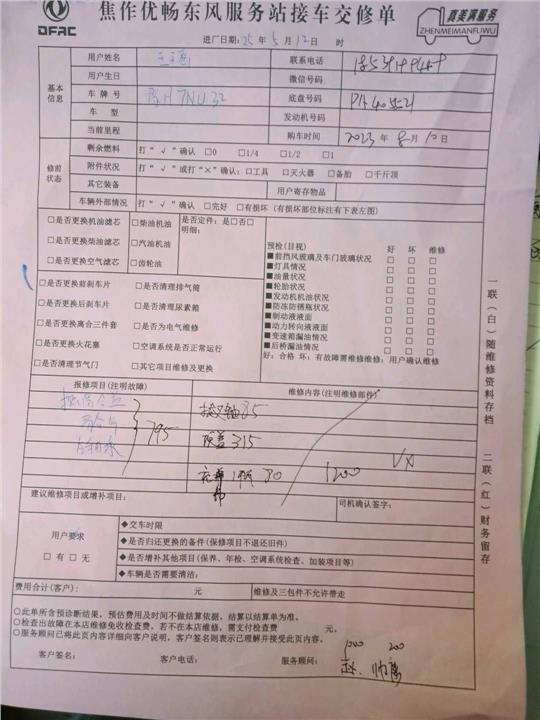 DFAC
焦作优畅东风服务站接车交修单
真美满服务
ZHENMEIMANFUWU
进厂日期:25年5月12日 时
基本信息
用户姓名
联系电话
用户生日
微信号码
车牌号
底盘号码
车型
发动机号码
当前里程
购车时间 2023年8月10日
修前状态
剩余燃料 打“√”确认 □0 □1/4 □1/2 □1
附件状况 打“√”或打“×”确认:□工具 □灭火器 □备胎 □千斤顶
其它装备
用户寄存物品
车辆外部情况 打“√”确认 □完好 □有损坏(有损坏部位标注有下表左图)
□是否更换机油滤芯 □柴油机油
□是否更换柴油滤芯 □汽油机油
□是否更换空气滤芯 □齿轮油
是否定件:是□否□
明细:
□是否更换前刹车片 □是否清理排气筒
□是否更换后刹车片 □是否清理尿素箱
□是否更换离合三件套 □是否为电气维修
□是否更换火花塞 □空调系统是否正常运行
□是否清理节气门 □其它项目维修及更换
预检(目视) 好 坏 维修
■前挡风玻璃及车门玻璃状况 □ □ □
■灯具情况 □ □ □
■油量状况 □ □ □
■轮胎状况 □ □ □
■发动机机油状况 □ □ □
■防冻防锈瓶状况 □ □ □
■制动液液面 □ □ □
■动力转向液液面 □ □ □
■变速箱漏油情况 □ □ □
■后桥漏油情况 □ □ □
好:合格 坏:有故障需维修维修:用户确认维修
报修项目(注明故障)
维修内容(注明维修部件)
795
拨叉轴85
315
80
1200
建议维修项目或增补项目:
司机确认签字:
用户要求
□有 □无
◆交车时限
◆是否归还更换的备件(保修项目不退还旧件)
◆是否增补其他项目(保养、年检、空调系统检查、加装项目等)
◆车辆是否需要清洁:
费用合计(客户): 元
维修及三包件不允许带走
○此单所含预诊断结果,预估费用及时间不做结算依据,结算以结算单为准。
○检查出故障在本店维修免收检查费。若不在本店维修,需支付检查费 元。
○服务顾问已将此页内容详细向客户说明,客户签名则表示已理解并接受此页内容。
1000 200
客户签名: 客户电话: 服务顾问:
一联(白)随维修资料存档
二联(红)财务留存